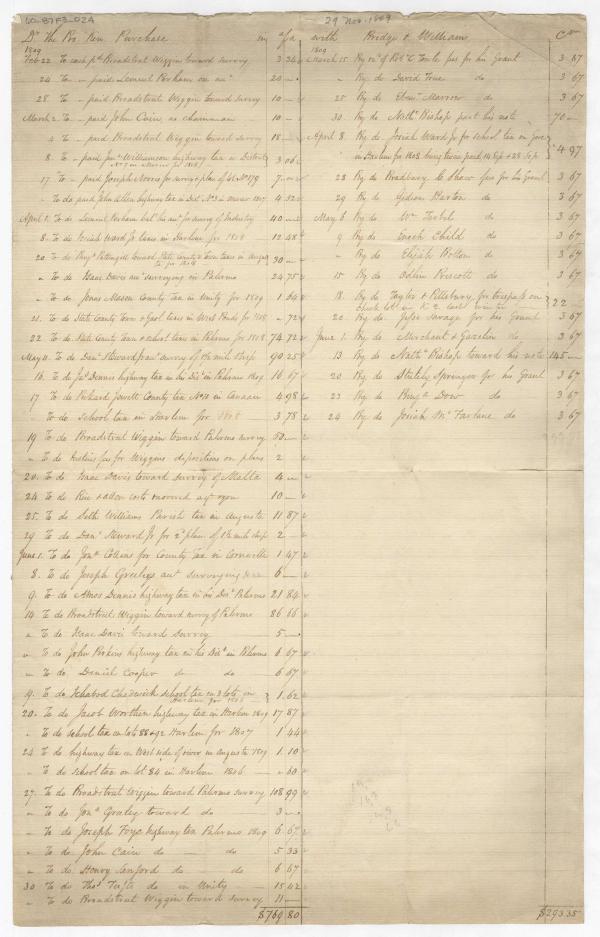 60-87F3-02A
29 Nov. 1809
Dr. The Pro. Ken. Purchase in a/c with Bridge & Williams Cr.
1809
Feb 22 To cash pd. Broadstreet Wiggin toward survey 3 36
24 To - paid Lemuel Perham on acct. 20 -
28 To - paid Broadstreet Wiggin toward survey 10 -
March 2 To - paid John Cain as chainman 10 -
4 To - paid Broadstreet Wiggin toward survey 18 -
8 To - paid Williamson highway tax in District
3 06
17 To - paid Joseph Norris for survey & plan of No 179 7 -
" To do paid John Allen highway tax in Dist. No 3 in 1807 4 32
April 1 To do Lemuel Perham bal. his acct. for survey of Industry 40 -
8 To do Josiah Ward Jr taxes in Harlem for 1808 12 48
20 To do Benj. Pettengill toward State County & Town taxes in Augusta
30 -
" To do Isaac Davis acct. surveying in Palermo 24 75
" To do Jonas Mason County Tax in Unity for 1809 1 60
21 To do State County Town & School taxes in West Ponds for 1808 - 72
22 To do State County Town & school taxes in Palermo for 1808 74 72
May 11 To do Danl. Steward Jr acct. survey of 1/2 mile strip 90 25
16 To do Jas. Dennis highway tax in his Dist. in Palermo 1809 16 67
17 To do Richard Jewett County tax No 10 in Canaan 4 98
" To do school tax in Harlem for 1808 3 78
19 To do Broadstreet Wiggin toward Palermo survey 50 -
" To do Justices fees for Wiggins depositions on plans 2
20 To do Isaac Davis toward survey of Malta 4 -
24 To do Rice 10 -
25 To do Seth Williams Parish tax in Augusta 11 87
29 To do Danl. Steward Jr for 2d plan of 1/2 mile strip 2 -
June 1 To do Jona. Collins for County Tax in Cornville 1 47
8 To do Joseph Greeleys acct. surveying 6 -
9 To do Amos Dennis highway tax in his Dist. Palermo 21 84
14 To do Broadstreet Wiggin toward survey of Palermo 86 66
" To do Isaac Davis toward survey 5 -
" To do John Perkins highway tax in his Dist. in Palermo 6 67
" To do Daniel Cooper do do 6 67
9 To do Ichabod Chadwick school tax on 3 lots in
Harlem for 1808 1 62
20 To do Jacob Worthen highway tax in Harlem 1809 17 87
" To do school tax on lots 88 & 92 Harlem for 1807 1 44
24 To do highway tax on West side of river in Augusta 1809 1 10
" To do school tax on lot 84 in Harlem 1806 - 60
27 To do Broadstreet Wiggin toward Palermo survey 108 99
" To do Jona. Greeley toward do 3 -
" To do Joseph Foye highway tax Palermo 1809 6 67
" To do John Cain do do 5 33
" To do Henry Sanford do do 6 67
30 To do Thos. Tufts do in Unity 15 42
" To do Broadstreet Wiggin toward survey 11 -
$769 80
1809
March 15 By Robt. C. Towle fees for his Grant 3 87
" By do David True do 3 67
25 By do Ebenr. Marrow do 3 67
30 By do Nathl. Bishop part his note 70 -
April 8 By do Josiah Ward Jr for school tax on
in Harlem for 1808 being twice paid 14 Sep & 28 Sep 4 97
28 By do Bradbury C Shaw fees for his Grant 3 67
29 By do Gideon Barton do 3 67
May 6 By do Wm. Isabel do 3 67
9 By do Enoch Child do 3 67
" By do Elijah Bolton do 3 67
15 By do Odlin Prescott do 3 67
18 By do Taylor & Pillsbury for trespass on
22 -
20 By do Jesse Savage for his Grant 3 67
June 1 By do Merchant & Gazelin do 3 67
13 By do Nathl. Bishop toward his note 145 -
20 By do Stately Springer for his Grant 3 67
23 By do Benja. Dow do 3 67
24 By do Josiah McFarlane do 3 67
$293.35